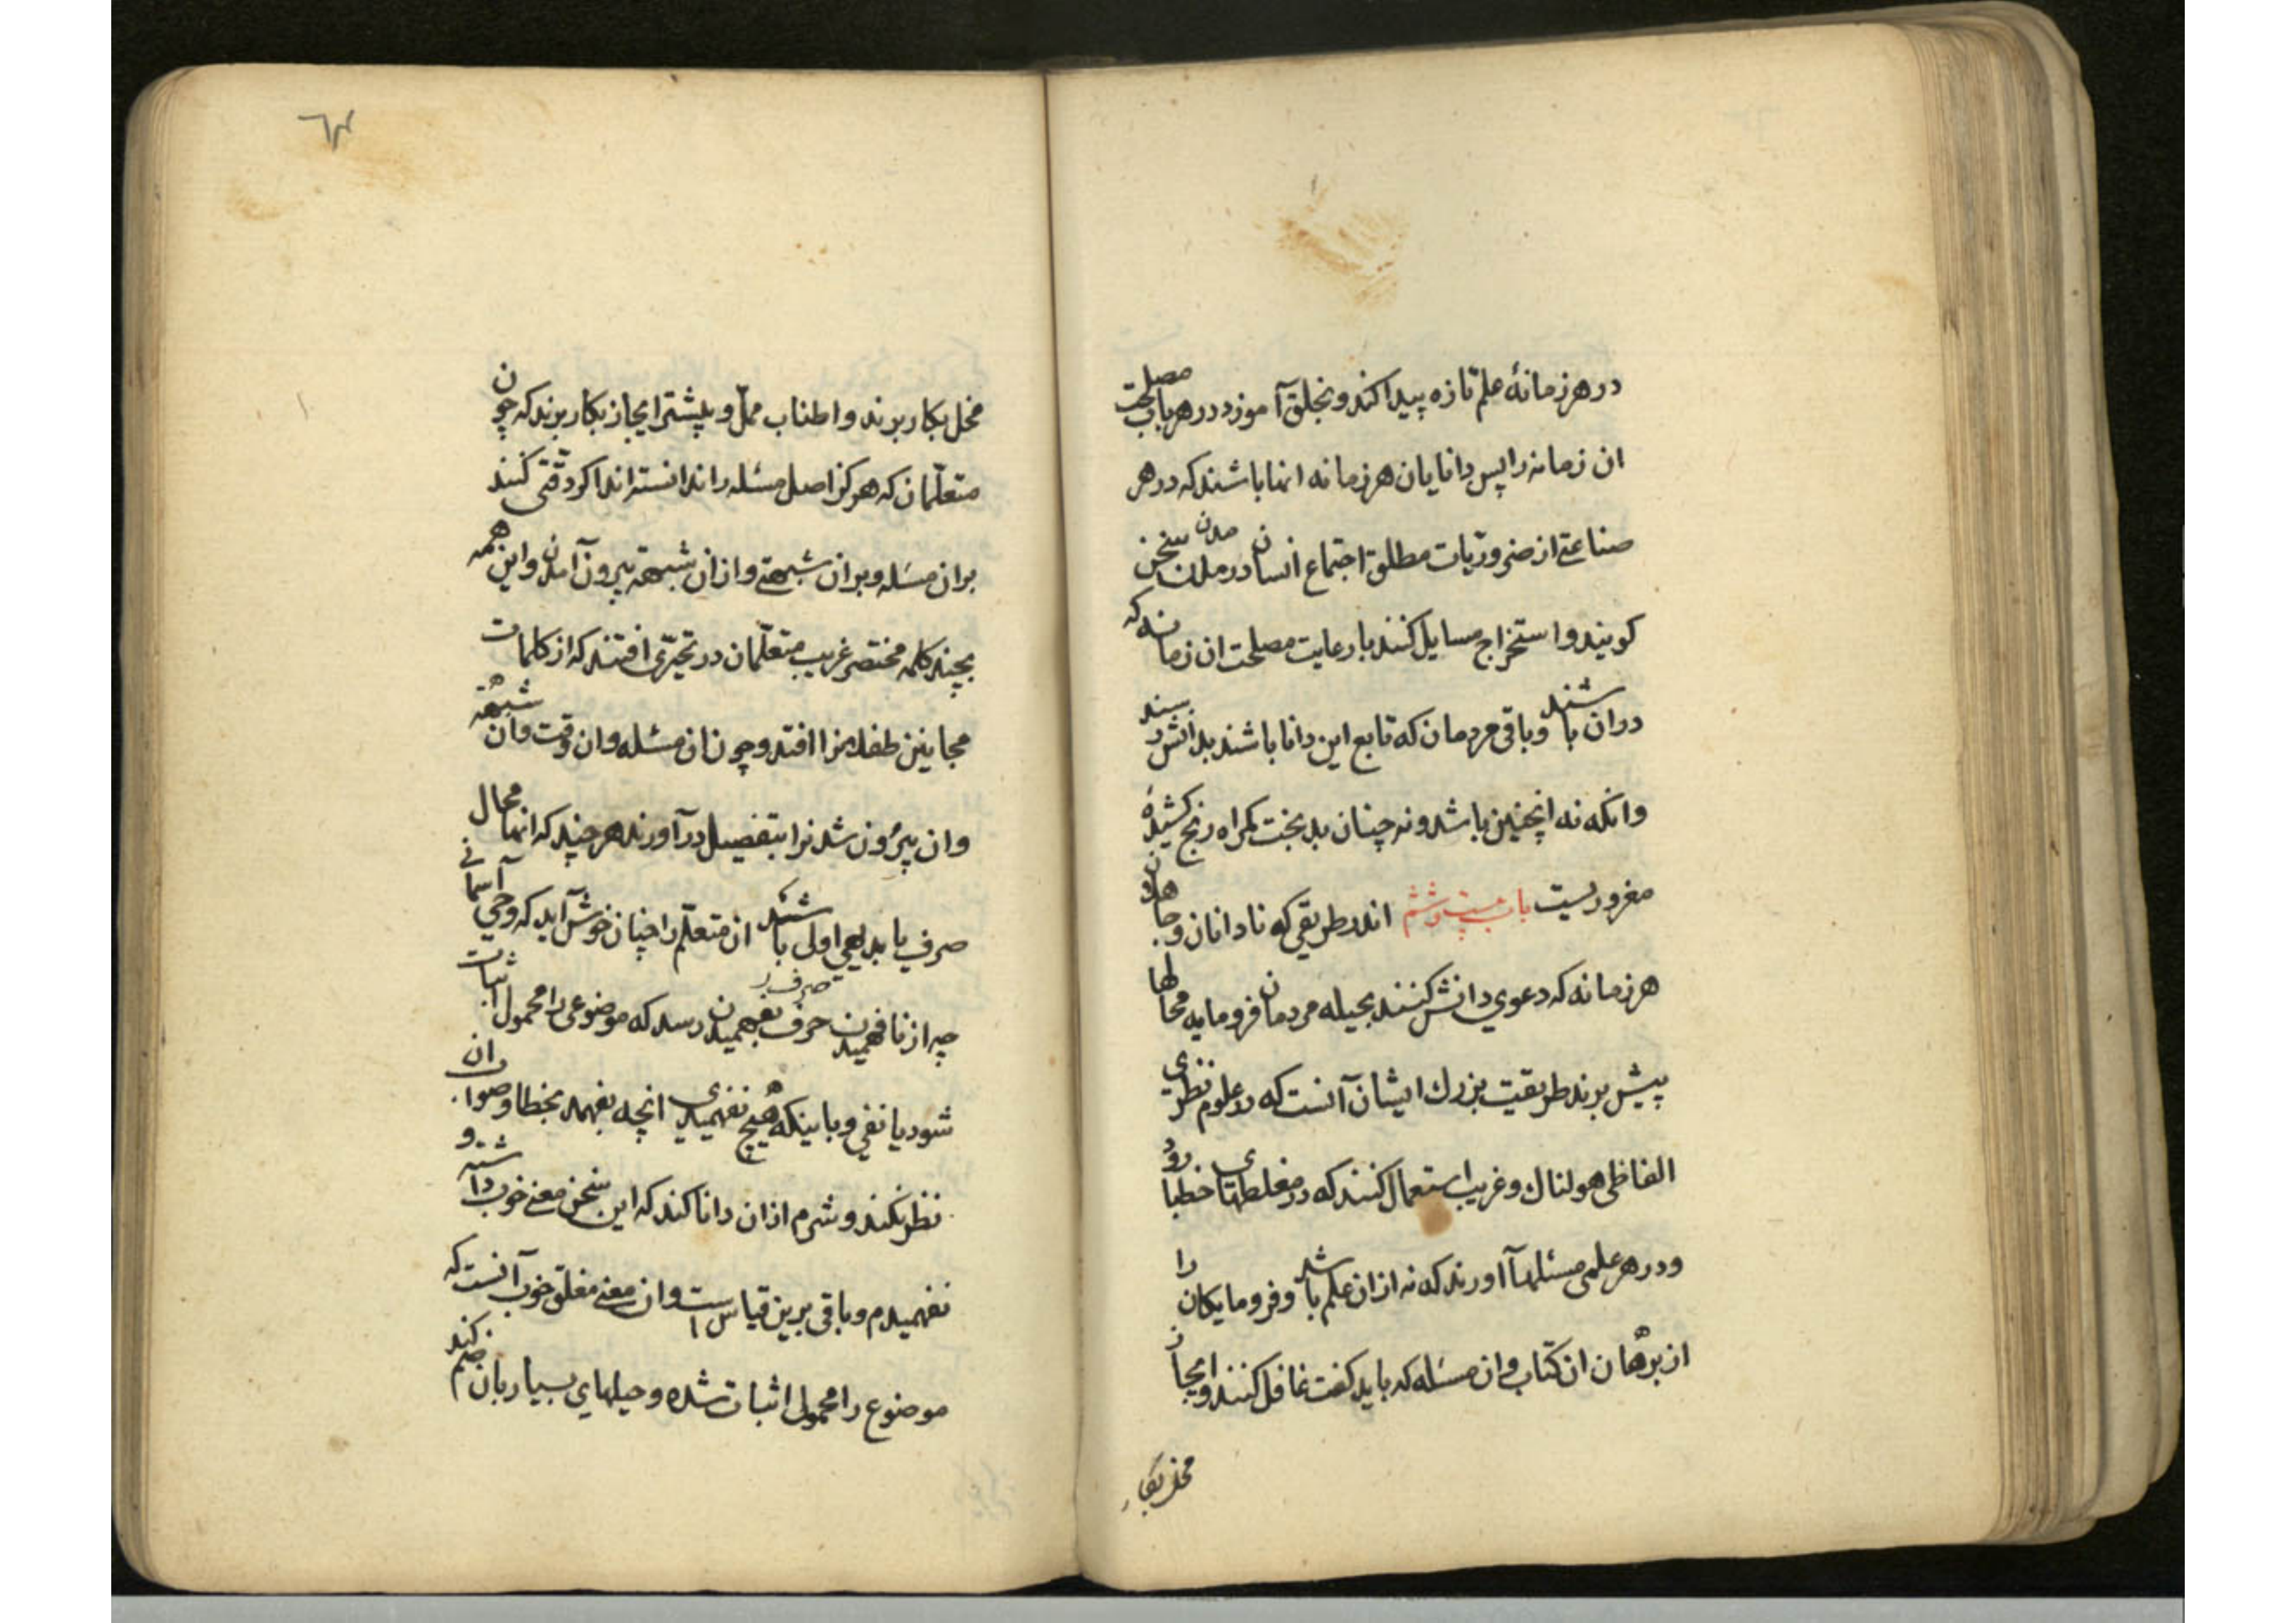 در هر زمانهٔ علم تازه پیدا کند و بخلق آموزد در هر باب مصلحت
ان زمانه را پس دانایان هر زمانه انها باشند که در هر
صناعتے از ضروریات مطلق اجتماع انسان در مدن سخن
کویند و استخراج مسایل کنند با رعایت مصلحت ان زمانه که
دران باشند و باقی مردمان که تابع این دانا باشند بدانش رسند
وانکه نه اینچنین باشد و نه چنان بدبخت کمراه رنج کشیدهٔ
مغروریست باب بیست و ششم اندر طریقی که نادانان و جاهلان
هر زمانه که دعوی دانش کنند بحیله مردمان فرومایه محالها
پیش برند طریقیت بزرك ایشان آنست که در علوم نظری
الفاظی هولناك و غریب استعمال کنند که در مغلطهای خطبا رود
و در هر علمی مسئلها آورند که نه ازان علم باشد و فرومایکان را
از برهان ان کتاب وان مسئله که باید کفت غافل کنند و ایجاز
مخل بکار
٦٣
مخل بکار برند و اطناب مملّ و پیشتر ایجاز بکار برند که چون
متعلّمان که هرکز اصل مسئله را ندانسته اند اکر دقّتی کنند
بران مسئله و بران شبهتے و ازان شبهته بیرون آمدن و این همه
بچند کلمه مختصر غریب متعلّمان در تحیّری افتند که از کلمات
مجانین طفل مزا افتد و چون ان مسئله وان وقت وان شبهته
وان بیرون شدنرا بتفصیل در آورند هر چند که انها محال
صرف یا بدیهی اولی باشند ان متعلّم را چنان خوش آید که وحی آسمانے
چه از نافهمیدن حرف بفهمیدن رسد که موضوعی را محمول اثبات
صرف
شود یا نفی و با اینکه هیچ نفهمیدی انچه بفهمد بخطا و صواب ان
نظر نکند و شرم ازان دانا کند که این سخن معنے خوب داشته و
نفهمیدم و باقی برین قیاس است وان معنے مغلق خوب آنست که
موضوع را محمولی اثبات شده و حیلهای بسیار بان ضم کند